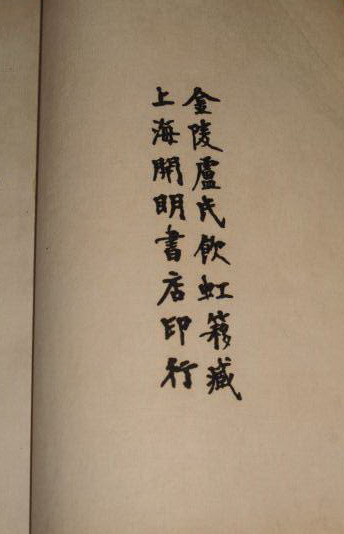 金陵盧氏飲虹簃藏
上海開明書店印行